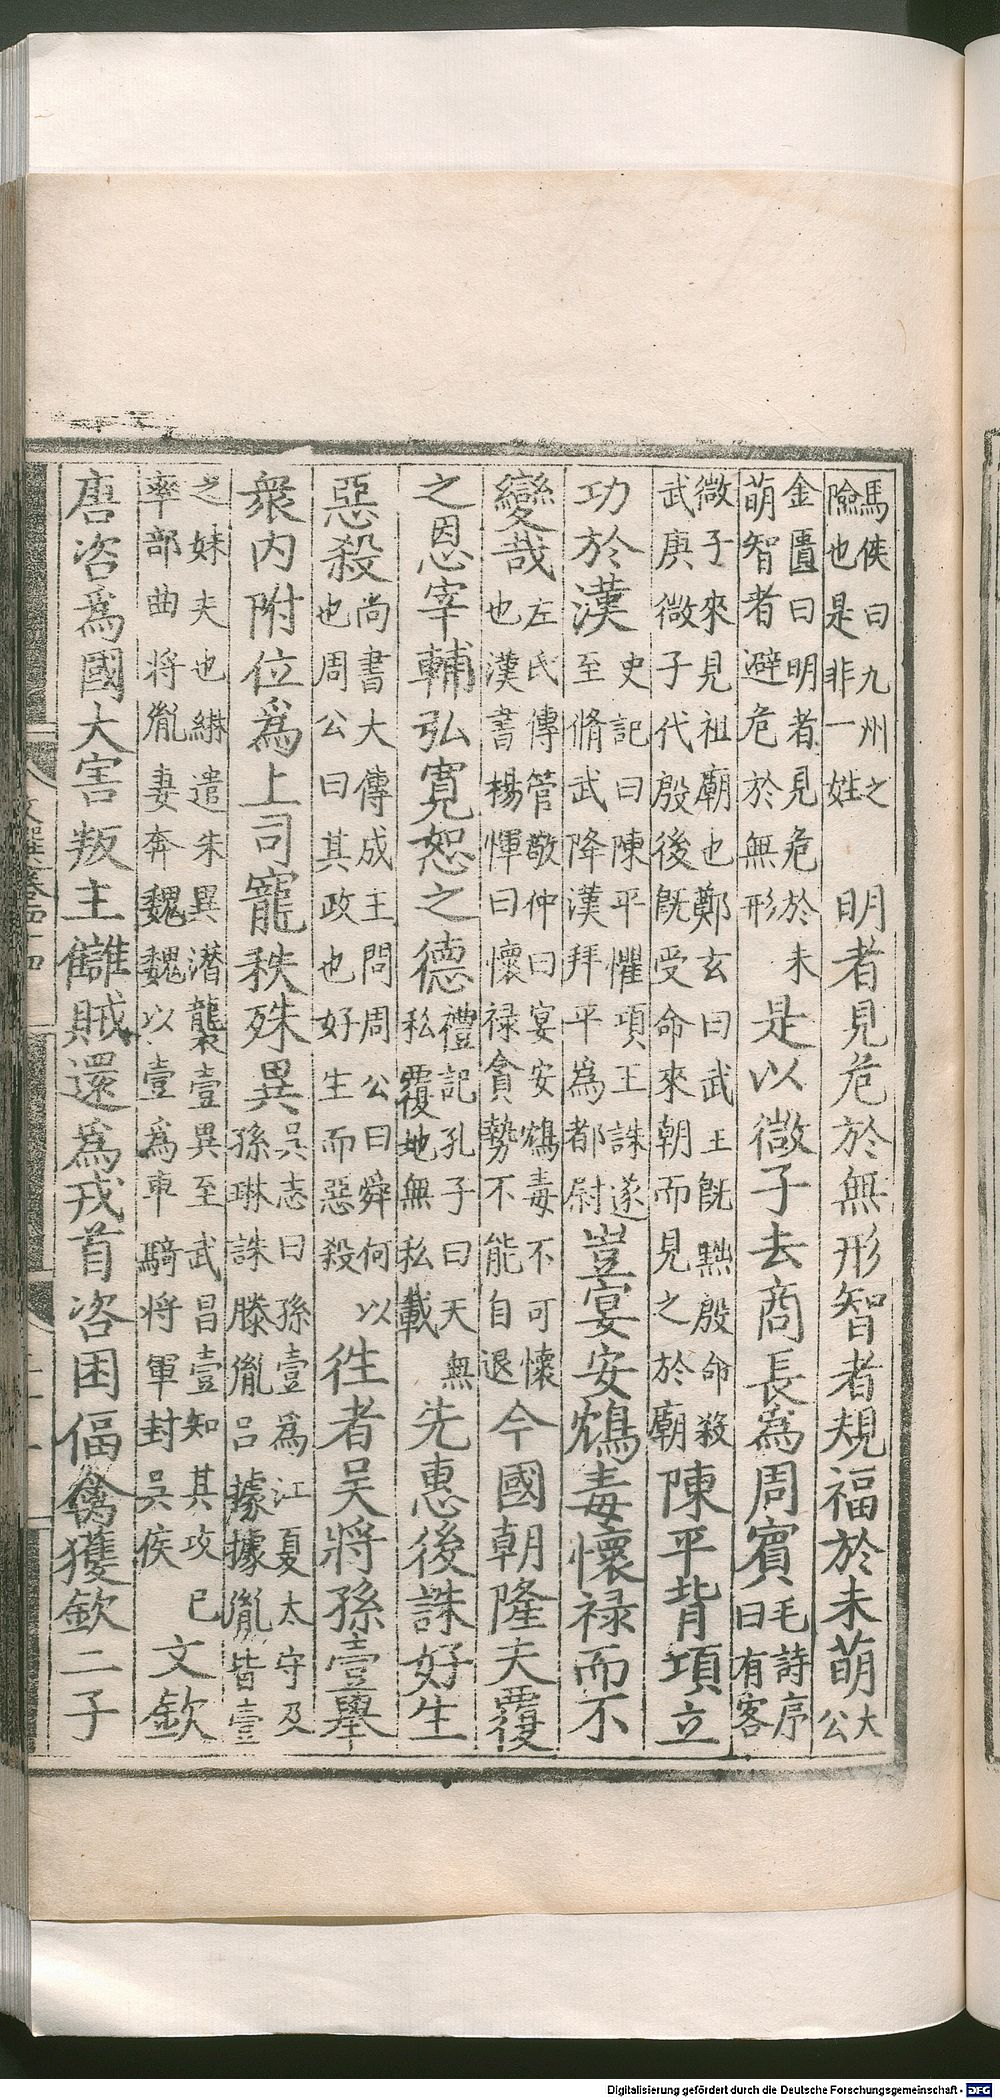 馬侯曰九州之險也是非一姓明者見危於無形智者規福於未萌大公
金匱曰明者見危於未萌智者避危於無形是以微子去商長爲周賓毛詩序曰有客
微子來見祖廟也鄭玄曰武王既黜殷命殺武庚微子代殷後既受命來朝而見之於廟陳平背項立
功於漢史記曰陳平懼項王誅遂至脩武降漢拜平爲都尉豈宴安鴆毒懷禄而不
變哉左氏傳管敬仲曰宴安鴆毒不可懷也漢書楊惲曰懷禄貪勢不能自退今國朝隆夫覆
之恩宰輔弘寬恕之德禮記孔子曰天無私覆地無私載先惠後誅好生
惡殺尚書大傳成王問周公曰舜何以也周公曰其政也好生而惡殺往者吳將孫壹舉
衆内附位爲上司寵秩殊異吳志曰孫壹爲江夏太守及孫琳誅滕胤呂據據胤皆壹
之妹夫也綝遣朱異潛襲壹異至武昌壹知其攻已率部曲將胤妻奔魏魏以壹爲車騎將軍封吳侯文欽
唐咨爲國大害叛主讎賊還爲戎首咨困偪禽獲欽二子
文選卷四十四
Digitalisierung gefördert durch die Deutsche Forschungsgemeinschaft - DFG